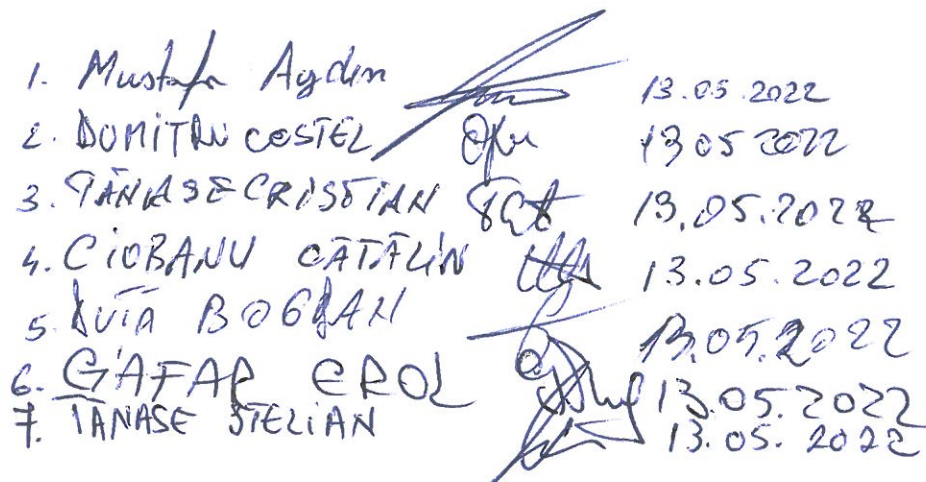 1. Mustafa Aydin 13.05.2022
2. DUMITRU COSTEL 13 05 2022
3. TĂNASE CRISTIAN 13.05.2022
4. CIOBANU CĂTĂLIN 13.05.2022
5. BOGDAN 13.05.2022
6. GIAFAR EROL 13.05.2022
7. TANASE STELIAN 13.05.2022